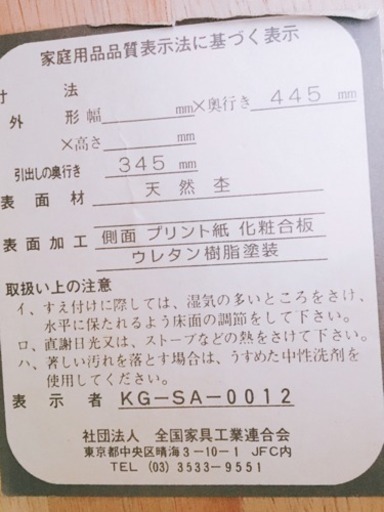 家庭用品品質表示法に基づく表示
寸法
外形 幅 mm ×奥行き 445mm
×高さ mm
引出しの奥行き 345mm
表面材 天然杢
表面加工 側面 プリント紙 化粧合板
ウレタン樹脂塗装
取扱い上の注意
イ、すえ付けに際しては、湿気の多いところをさけ、
水平に保たれるよう床面の調節をして下さい。
ロ、直謝日光又は、ストーブなどの熱をさけて下さい。
ハ、著しい汚れを落とす場合は、うすめた中性洗剤を
使用してください。
表示者 KG-SA-0012
社団法人 全国家具工業連合会
東京都中央区晴海3-10-1 JFC内
TEL (03) 3533-9551